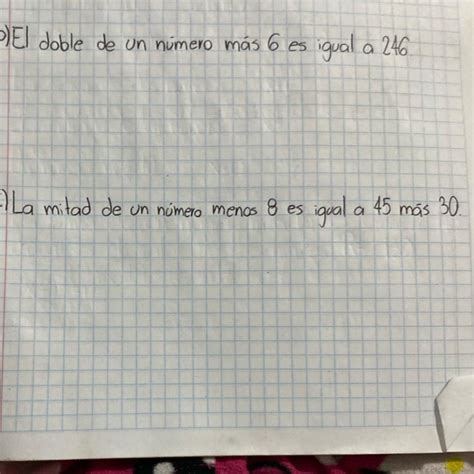 El doble de un número más 6 es igual a 246
La mitad de un número menos 8 es igual a 45 más 30.